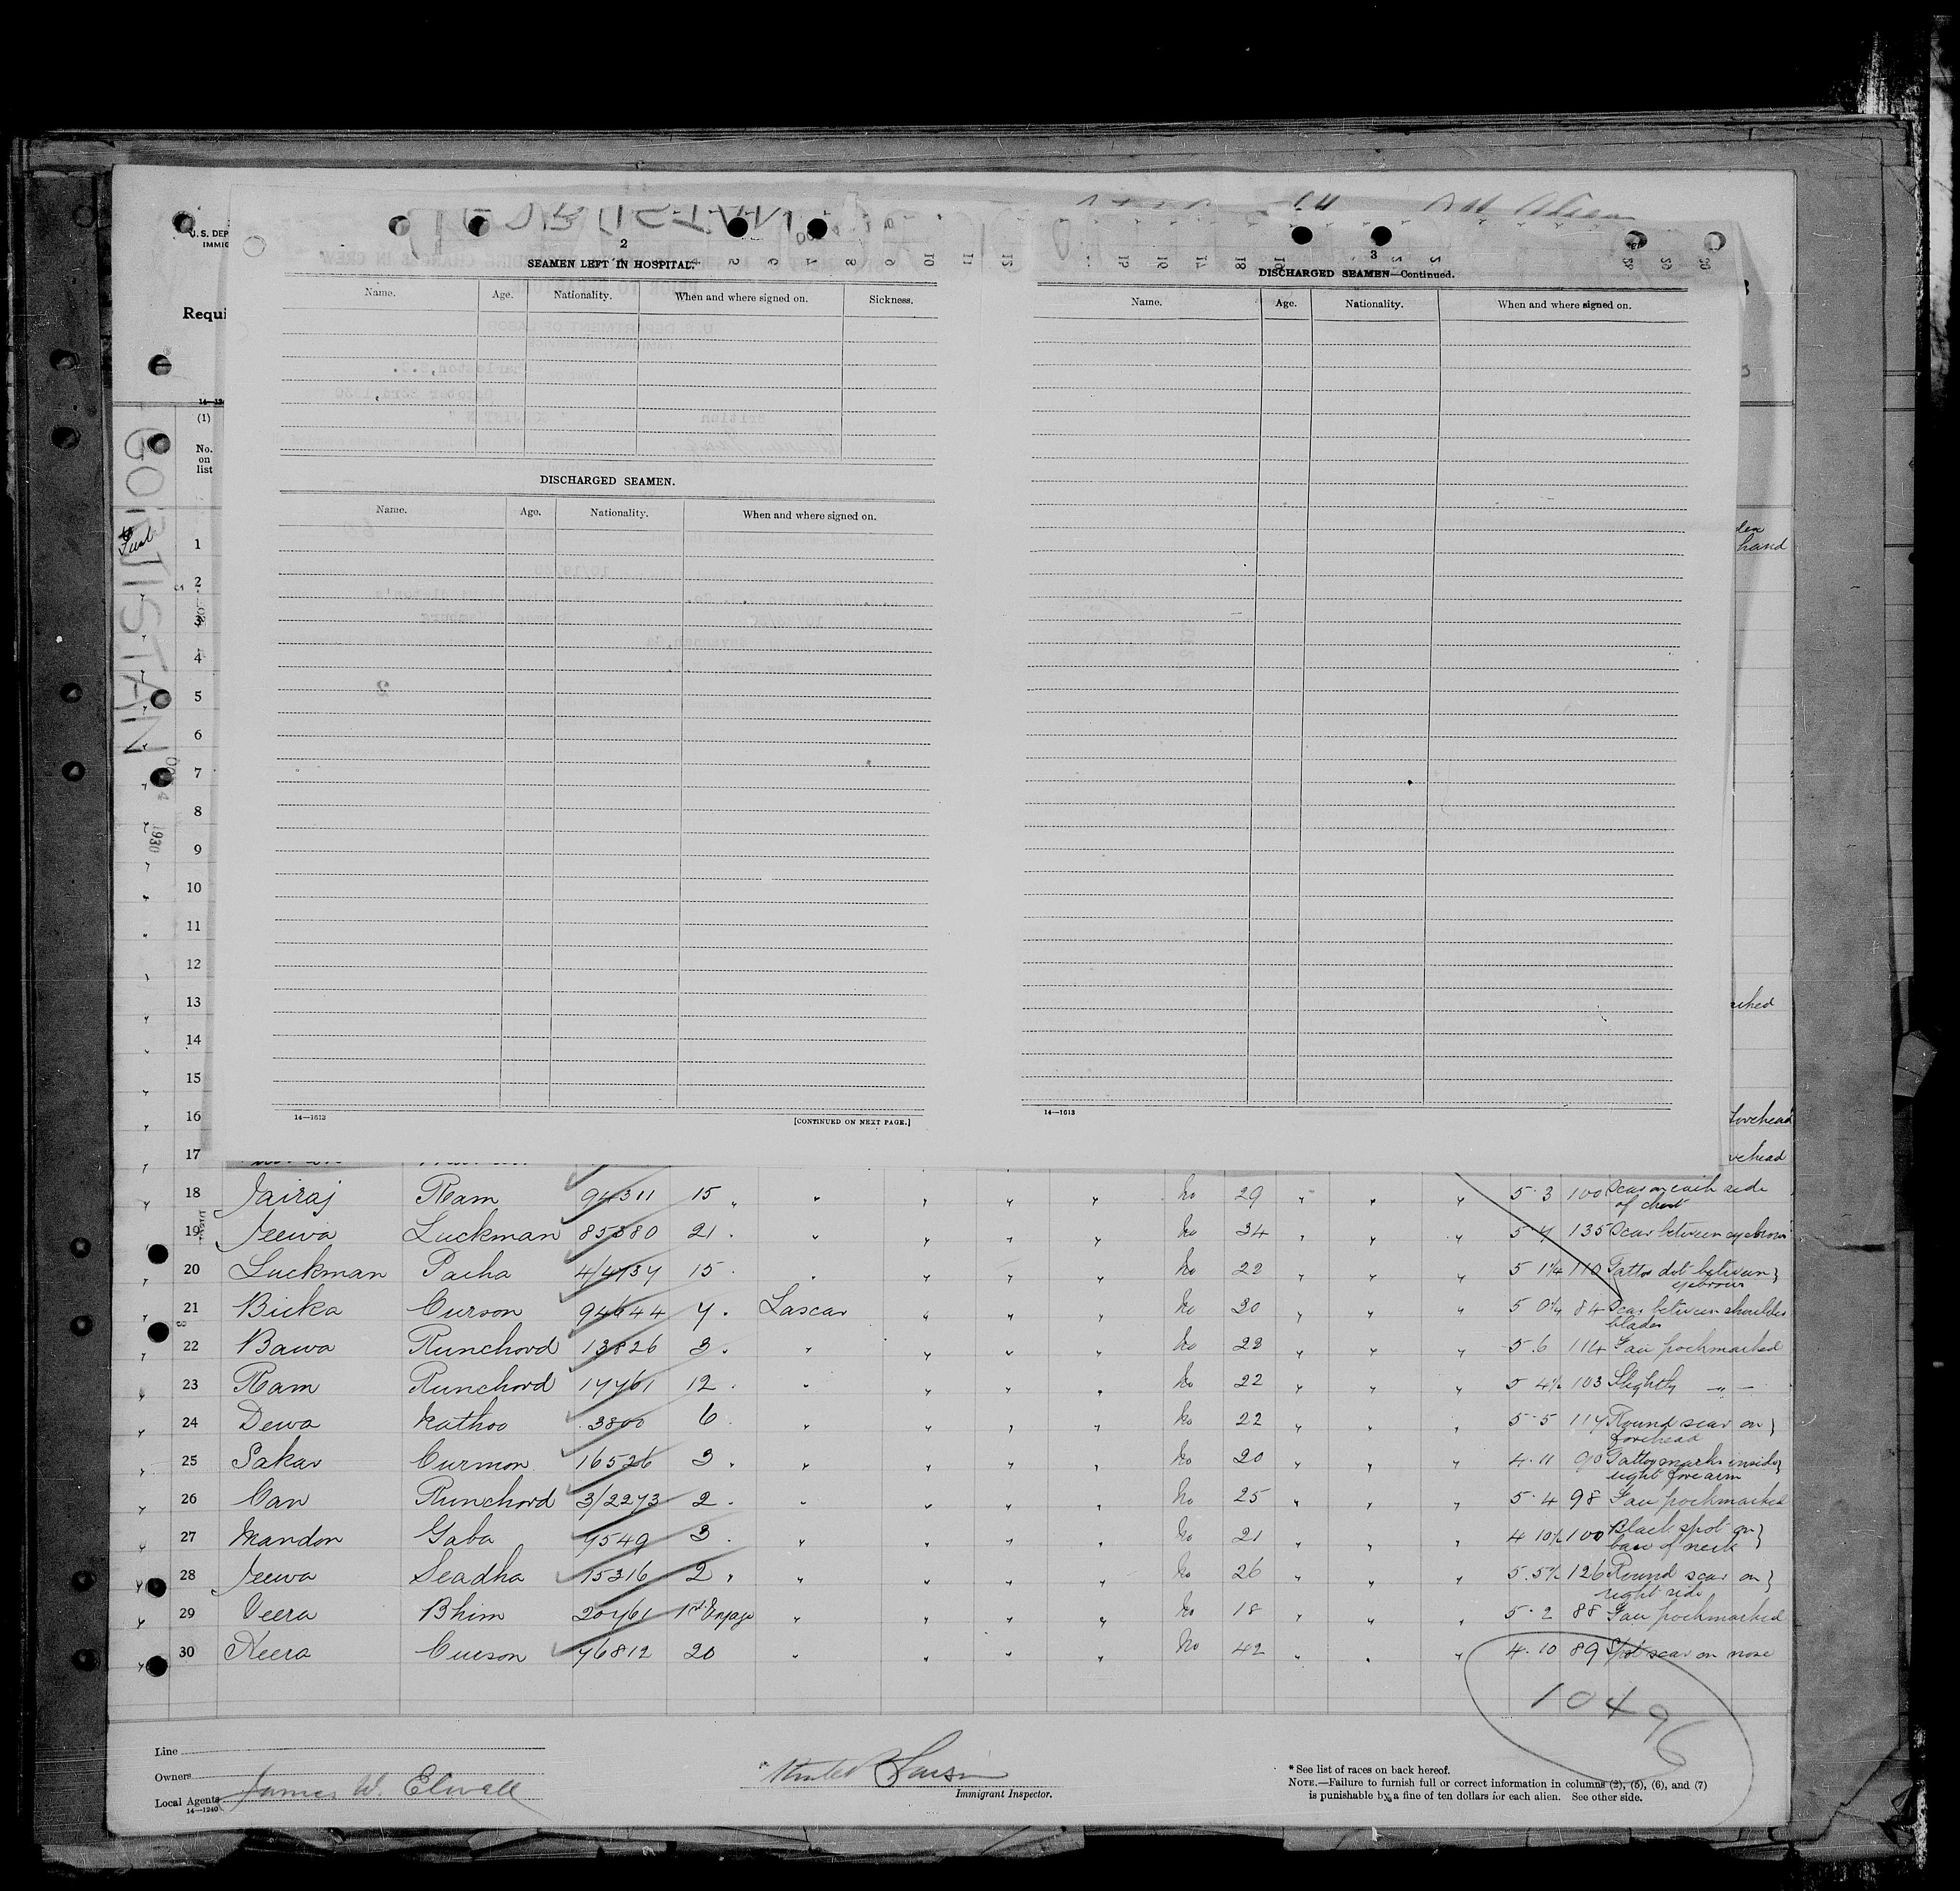 U. S. DEP
IMMIG
Requi
(1)
No.
on
list
GORJISTAN
1930
2
SEAMEN LEFT IN HOSPITAL.
Name. Age. Nationality. When and where signed on. Sickness.
DISCHARGED SEAMEN.
Name. Age. Nationality. When and where signed on.
14—1613 [CONTINUED ON NEXT PAGE.]
3
DISCHARGED SEAMEN—Continued.
Name. Age. Nationality. When and where signed on.
14—1613
1
hand
2
3
4
5
6
7
8
9
10
11
12
13
14
15
16
forehead
17
18 Jairaj Ram 94311 15 " " " " " No 29 " " " 5·3 100 Scar on each side
of chest
19 Jeewa Luckman 85380 21 " " " " " No 34 " " " 5 7 135 Scar between eyebrows
20 Luckman Pacha 4/4737 15 " " " " No 22 " " " 5 1¼ 110 Tattoo dot between }
eyebrows
21 Bicka Curson 94644 7 " Lascar " " " No 30 " " " 5 0¼ 84 Scar between shoulder
blades
22 Bawa Runchord 13826 3 " " " " " No 22 " " " 5·6 114 Face pockmarked
23 Ram Runchord 17761 12 " " " " " No 22 " " " 5 4½ 103 Slightly — " —
24 Dewa Kathoo 3800 6 " " " " " No 22 " " " 5·5 117 Round scar on }
forehead
25 Sakar Curmon 16526 3 " " " " " No 20 " " " 4·11 90 Tattoo marks inside }
right fore arm
26 Can Runchord 3/2273 2 " " " " " No 25 " " " 5·4 98 Face pockmarked
27 Mandon Gaba 7549 3 " " " " " No 21 " " " 4 10½ 100 Black spot on }
base of neck
28 Jeewa Seadha 15316 2 " " " " " No 26 " " " 5·5½ 126 Round scar on }
right side
29 Veera Bhim 20761 1st Engage " " " " No 18 " " " 5·2 88 Face pockmarked
30 Heera Curson 76812 20 " " " " No 42 " " " 4·10 89 Spot scar on nose
1049
Line
Owners
Local Agents James W. Elwell
14—1240
Immigrant Inspector.
* See list of races on back hereof.
NOTE.—Failure to furnish full or correct information in columns (2), (5), (6), and (7)
is punishable by a fine of ten dollars for each alien. See other side.